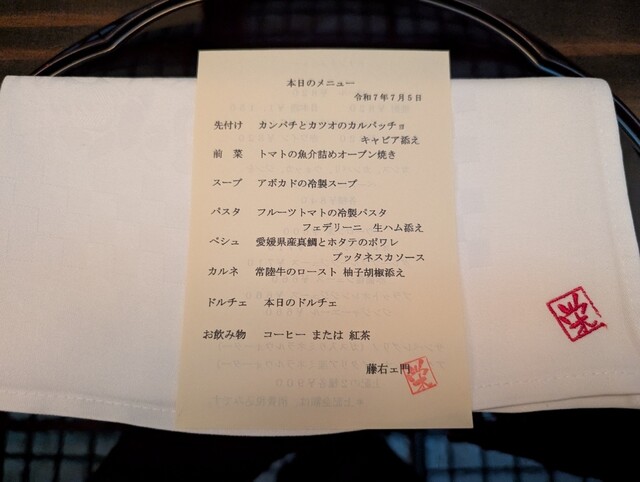 本日のメニュー
令和7年7月5日
先付け カンパチとカツオのカルパッチョ
キャビア添え
前 菜 トマトの魚介詰めオーブン焼き
スープ アボカドの冷製スープ
パスタ フルーツトマトの冷製パスタ
フェデリーニ 生ハム添え
ペシュ 愛媛県産真鯛とホタテのポワレ
プッタネスカソース
カルネ 常陸牛のロースト 柚子胡椒添え
ドルチェ 本日のドルチェ
お飲み物 コーヒー または 紅茶
藤右ェ門